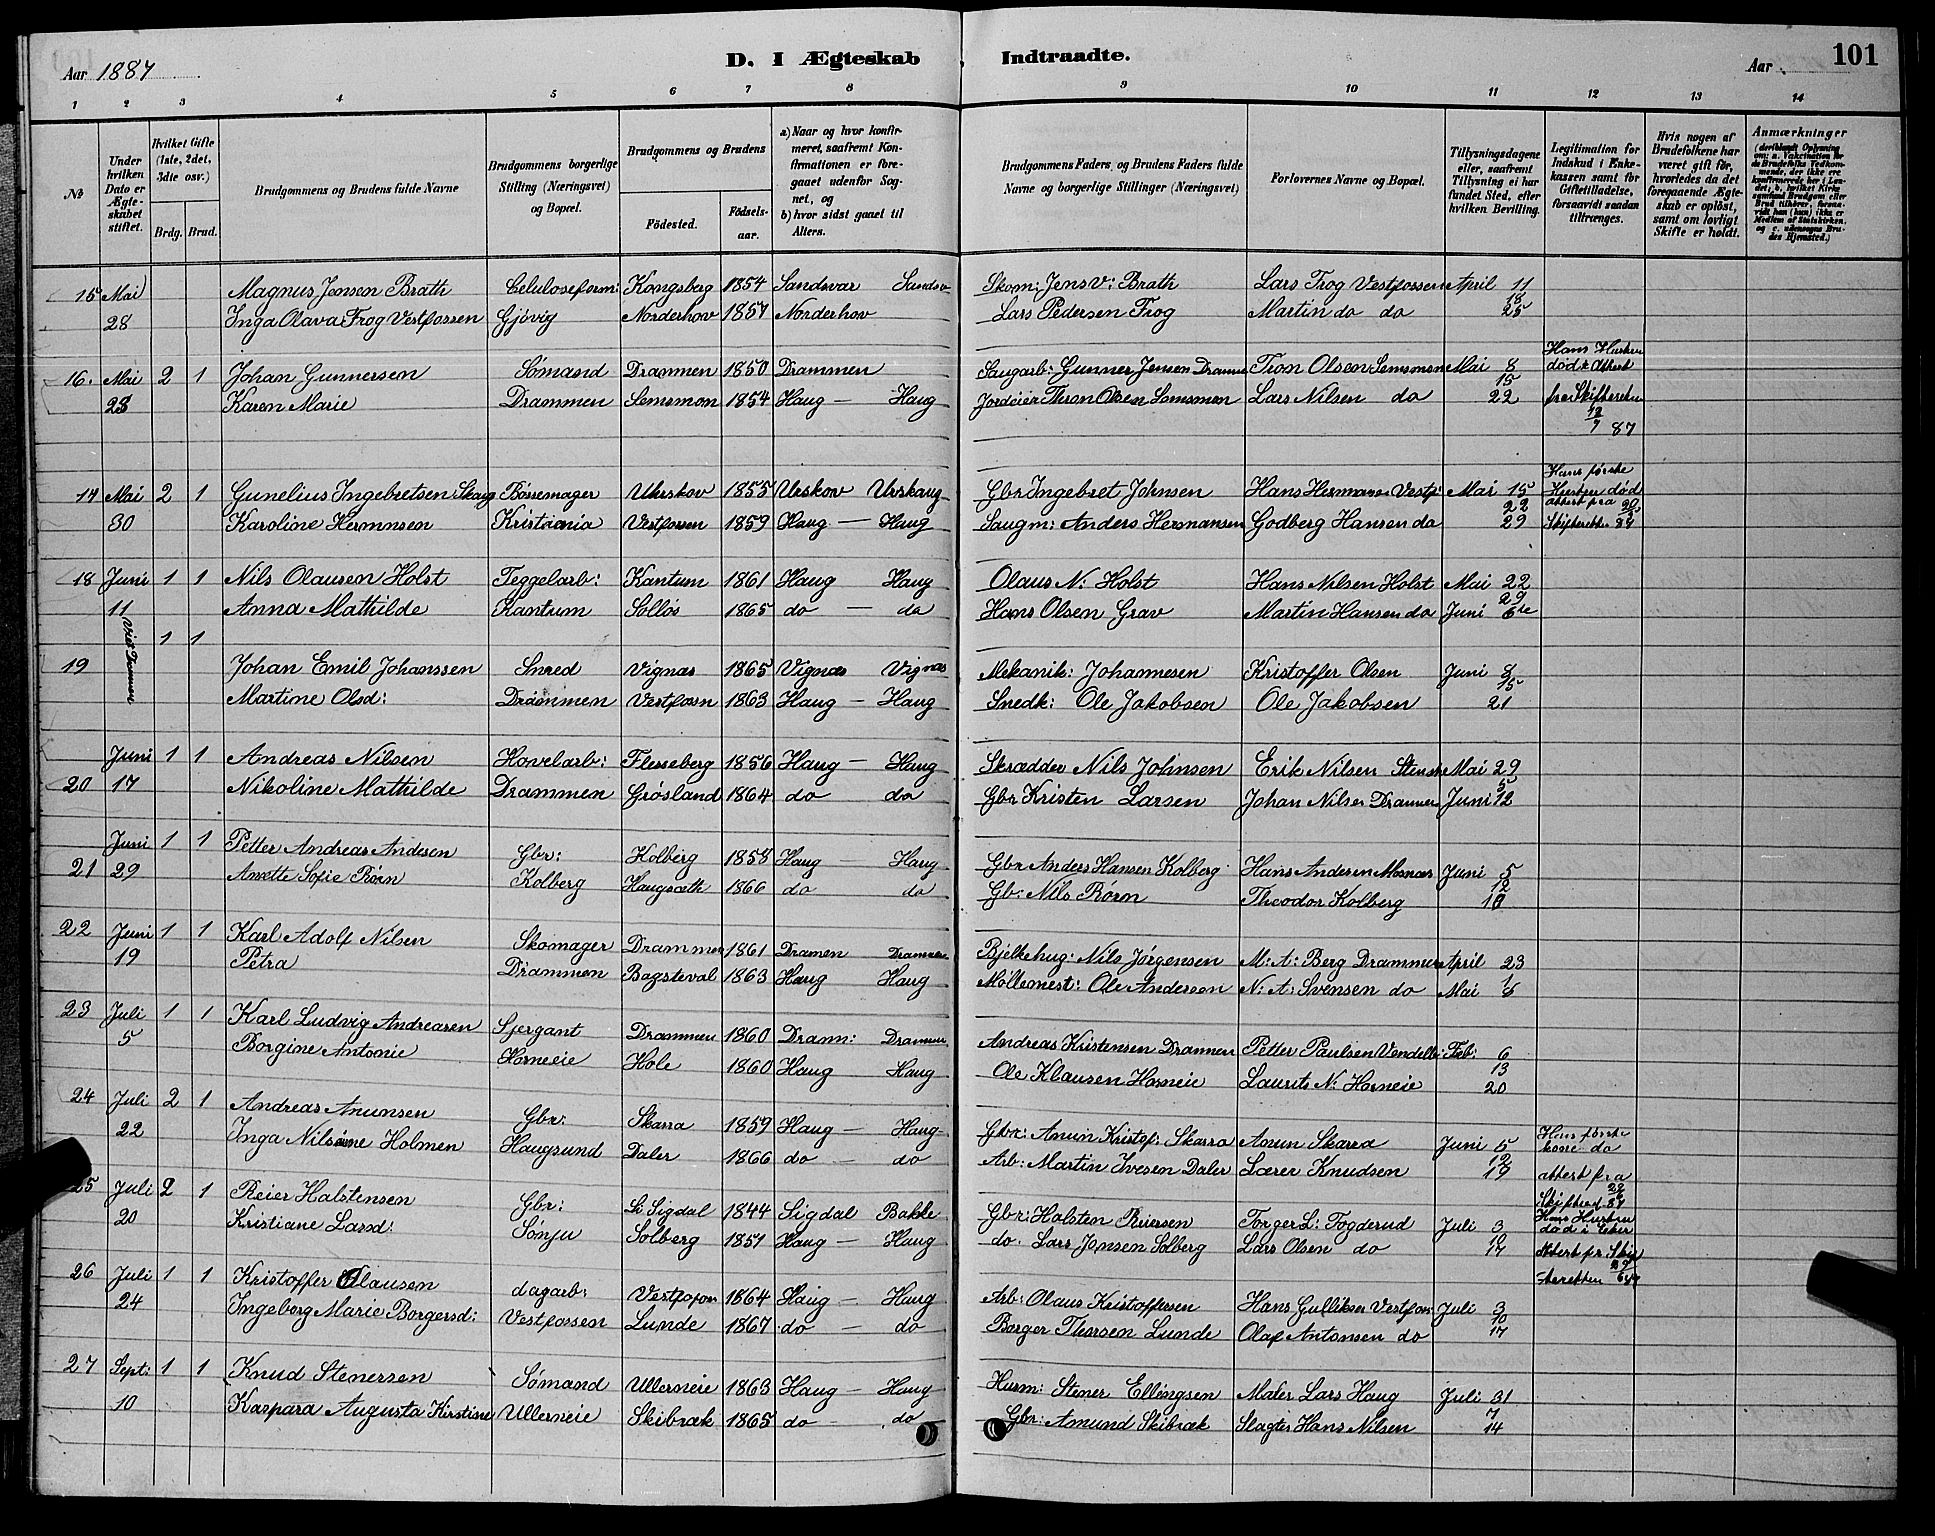 Aar 1887
D. I Ægteskab Indtraadte.
Aar
101
1 2 3 4 5 6 7 8 9 10 11 12 13 14
No
Under hvilken Dato er Ægteskabet stiftet.
Hvilket Gifte (1ste, 2det, 3die osv.)
Brdg. Brud.
Brudgommens og Brudens fulde Navne
Brudgommens borgerlige Stilling (Næringsvei) og Bopæl.
Brudgommens og Brudens
Födested. Födsels-aar.
a) Naar og hvor konfirmeret, saafremt Konfirmationen er foregaaet udenfor Sognet, og
b) hvor sidst gaaet til Alters.
Brudgommens Faders og Brudens Faders fulde Navne og borgerlige Stillinger (Næringsvei)
Forlovernes Navne og Bopæl.
Tillysningsdagene eller, saafremt Tillysning ei har fundet Sted, efter hvilken Bevilling.
Legitimation for Indskud i Enkekassen samt for Giftetilladelse, forsaavidt saadan tiltrænges.
Hvis nogen af Brudefolkene har været gift för, hvorledes da det foregaaende Ægteskab er oplöst, samt om lovligt Skifte er holdt.
Anmærkninger
15 Mai Magnus Jensen Brath Celuloseform: Kongsberg 1854 Sandsvær Sandsv Skom: Jens V: Brath Lars Frog Vestfossen April 11
18
28 Inga Olava Frog Vestfossen Gjövig Norderhov 1857 Norderhov Lars Pedersen Frog Martin do do 25
16. Mai 2 1 Johan Gunnersen Sømand Drammen 1850 Drammen Saugarb: Gunner Jensen Dramm Tron Olsen Semsmon Mai 8 Hans Hustru død Attest
15
28 Karen Marie Drammen Semsmon 1854 Haug — Haug Jordeier Thron Olsen Semsmon Lars Nilsen do 22 fra Skifteretten
12/7 87
17 Mai 2 1 Gunelius Ingebretsen Skaug Børsemager Uhrskov 1855 Urskov Urskaug Gbr Ingebret Johnsen Hans Hermansen Vestf: Mai 15 Hans første Hustru død
22 attest fra
30 Karoline Hermnsen Kristiania Vestfossen 1859 Haug — Haug Saugm: Anders Hermansen Godberg Hansen do 29 Skifteretten
18 Juni 1 1 Nils Olausen Holst Teggelarb: Kantum 1861 Haug Haug Olaus N: Holst Hans Nilsen Holst Mai 22
29
11 Anna Mathilde Kantum Solløs 1865 do — do Hans Olsen Grav Martin Hansen do Juni 6te
1 1
19 Johan Emil Johanssen Smed Vignæs 1865 Vignæs Vignæs Mekanik: Johannesen Kristoffer Olsen Juni 8
15
Martine Olsd: Drammen Vestfossn 1863 Haug — Haug Snedk: Ole Jakobsen Ole Jakobsen 21
Juni 1 1 Andreas Nilsen Hovelarb: Flesseberg 1856 Haug — Haug Skrædder Nils Johnsen Erik Nilsen Mai 29
5
20 17 Nikoline Mathilde Drammen Grøsland 1864 do do Gbr Kristen Larsen Johan Nilsen Drammen Juni 12
Juni 1 1 Petter Andreas Andesen Gbr: Kolberg 1858 Haug Haug Gbr Anders Hansen Kolberg Hans Andersen Juni 5
12
21 29 Anette Sofie Røren Kolberg Haugsæth 1866 do do Gbr: Nils Røren Theodor Kolberg 19
22 Juni 1 1 Karl Adolf Nilsen Skomager Drammen 1861 Dramen Drammen Bjelkehug: Nils Jørgensen M: A: Berg Drammen April 23
1
19 Petra Drammen Bagsteval 1863 Haug Haug Møllemest: Ole Andersen N: A: Svensen do Mai 8
23 Juli 1 1 Karl Ludvig Andreasen Sjergant Drammen 1860 Dramn: Drammen Andreas Kristensen Drammen Petter Paulsen Feb: 6
13
5 Borgine Antonie Horneie Hole 1860 Haug Haug Ole Klausen Horneie Laurits N: Horneie 20
24 Juli 2 1 Andreas Anunsen Gbr: Skarra 1859 Haug — Haug Gbr: Anun Kristof: Skarra Anun Skarra Juni 5 Hans første kone dø
12
22 Inga Nilsine Holmen Haugsund Daler 1866 do — do Arb: Martin Ivesen Daler Lærer Knudsen 19 attest fra
25 Juli 2 1 Reier Halstensen Gbr: Sigdal 1844 Sigdal Bakke Gbr: Holsten Reiersen Torger L: Fogderud Juli 3 Hans Hustru død i
10
20 Kristiane Larsd: Sønju Solberg 1851 Haug — Haug do. Lars Jonsen Solberg Lars Olsen do 17 Attest fr: Skif teretten
26 Juli 1 1 Kristoffer Olausen dagarb: Vestfossn 1864 Haug — Haug Arb: Olaus Kristoffersen Hans Gulliksen Vestfos: Juli 3
10
24 Ingeborg Marie Borgersd: Vestfossen Lunde 1867 do — do Borger Thorsen Lunde Olaf Antonsen do 17
27 Sept: 1 1 Knud Stenersen Sømand Ullerneie 1863 Haug — Haug Husm: Stener Ellingsen Maler Lars Haug Juli 31
7
10 Kaspara Augusta Kirstine Ullerneie Skibræk 1865 do do Gbr: Amund Skibræk Slagter Hans Nilsen 14